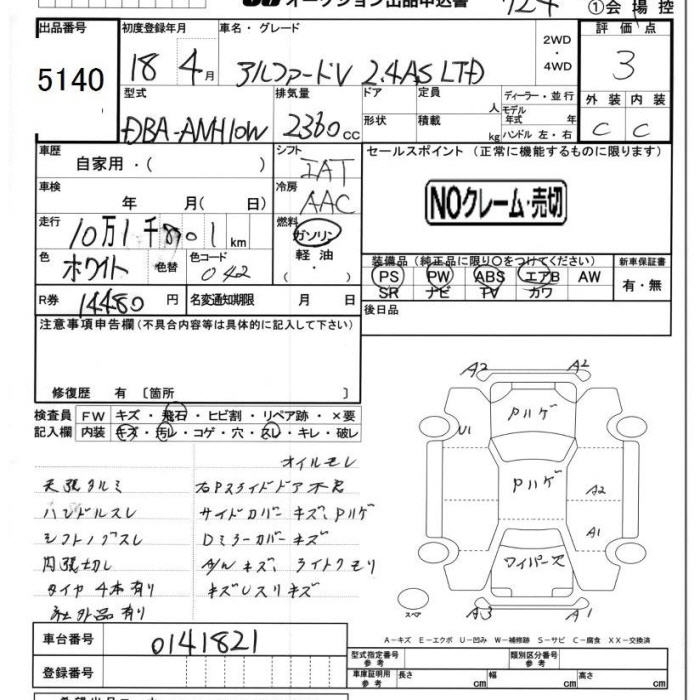 オークション出品申込書
①会場控
出品番号
5140
初度登録年月
18 4月
車名・グレード
アルファードV 2.4AS LTD
2WD
・
4WD
評価点
3
型式
DBA-ANH10W
排気量
2360cc
ドア
形状
定員 人
積載 kg
ディーラー・並行
モデル
年式 年
ハンドル 左・右
外装
C
内装
C
車歴
自家用・( )
シフト
車検
年 月( 日)
冷房
AAC
走行
10万1千801km
燃料
ガソリン
軽油
( ・ )
色
ホワイト
色替
色コード
042
R券
14480円
名変通知期限 月 日
セールスポイント (正常に機能するものに限ります)
NOクレーム・売切
装備品 (純正品に限り○をつけてください)
PS PW ABS エアB AW
SR ナビ TV カワ
新車保証書
有・無
後日品
注意事項申告欄 (不具合内容等は具体的に記入して下さい)
修復歴 有 〔箇所 〕
検査員
記入欄
FW キズ・飛石・ヒビ割・リペア跡・×要
内装 キズ・汚レ・コゲ・穴・スレ・キレ・破レ
オイルモレ
天張タルミ
右Pスライドドア不良
ハンドルスレ
サイドカバーキズ、Pハゲ
シフトノブスレ
Dミラーカバーキズ
内張切レ
A/Wキズ、ライトクモリ
タイヤ4本有り
キズUスリキズ
社外品有り
A2 A2
Pハゲ
U1
Pハゲ
A2
A1
ワイパーX
スペア
A3 A1
A-キズ E-エクボ U-凹み W-補修跡 S-サビ C-腐食 XX-交換済
車台番号
0141821
登録番号
型式指定番号
参考
類別区分番号
参考
車庫証明用
参考
長さ cm
幅 cm
高さ cm